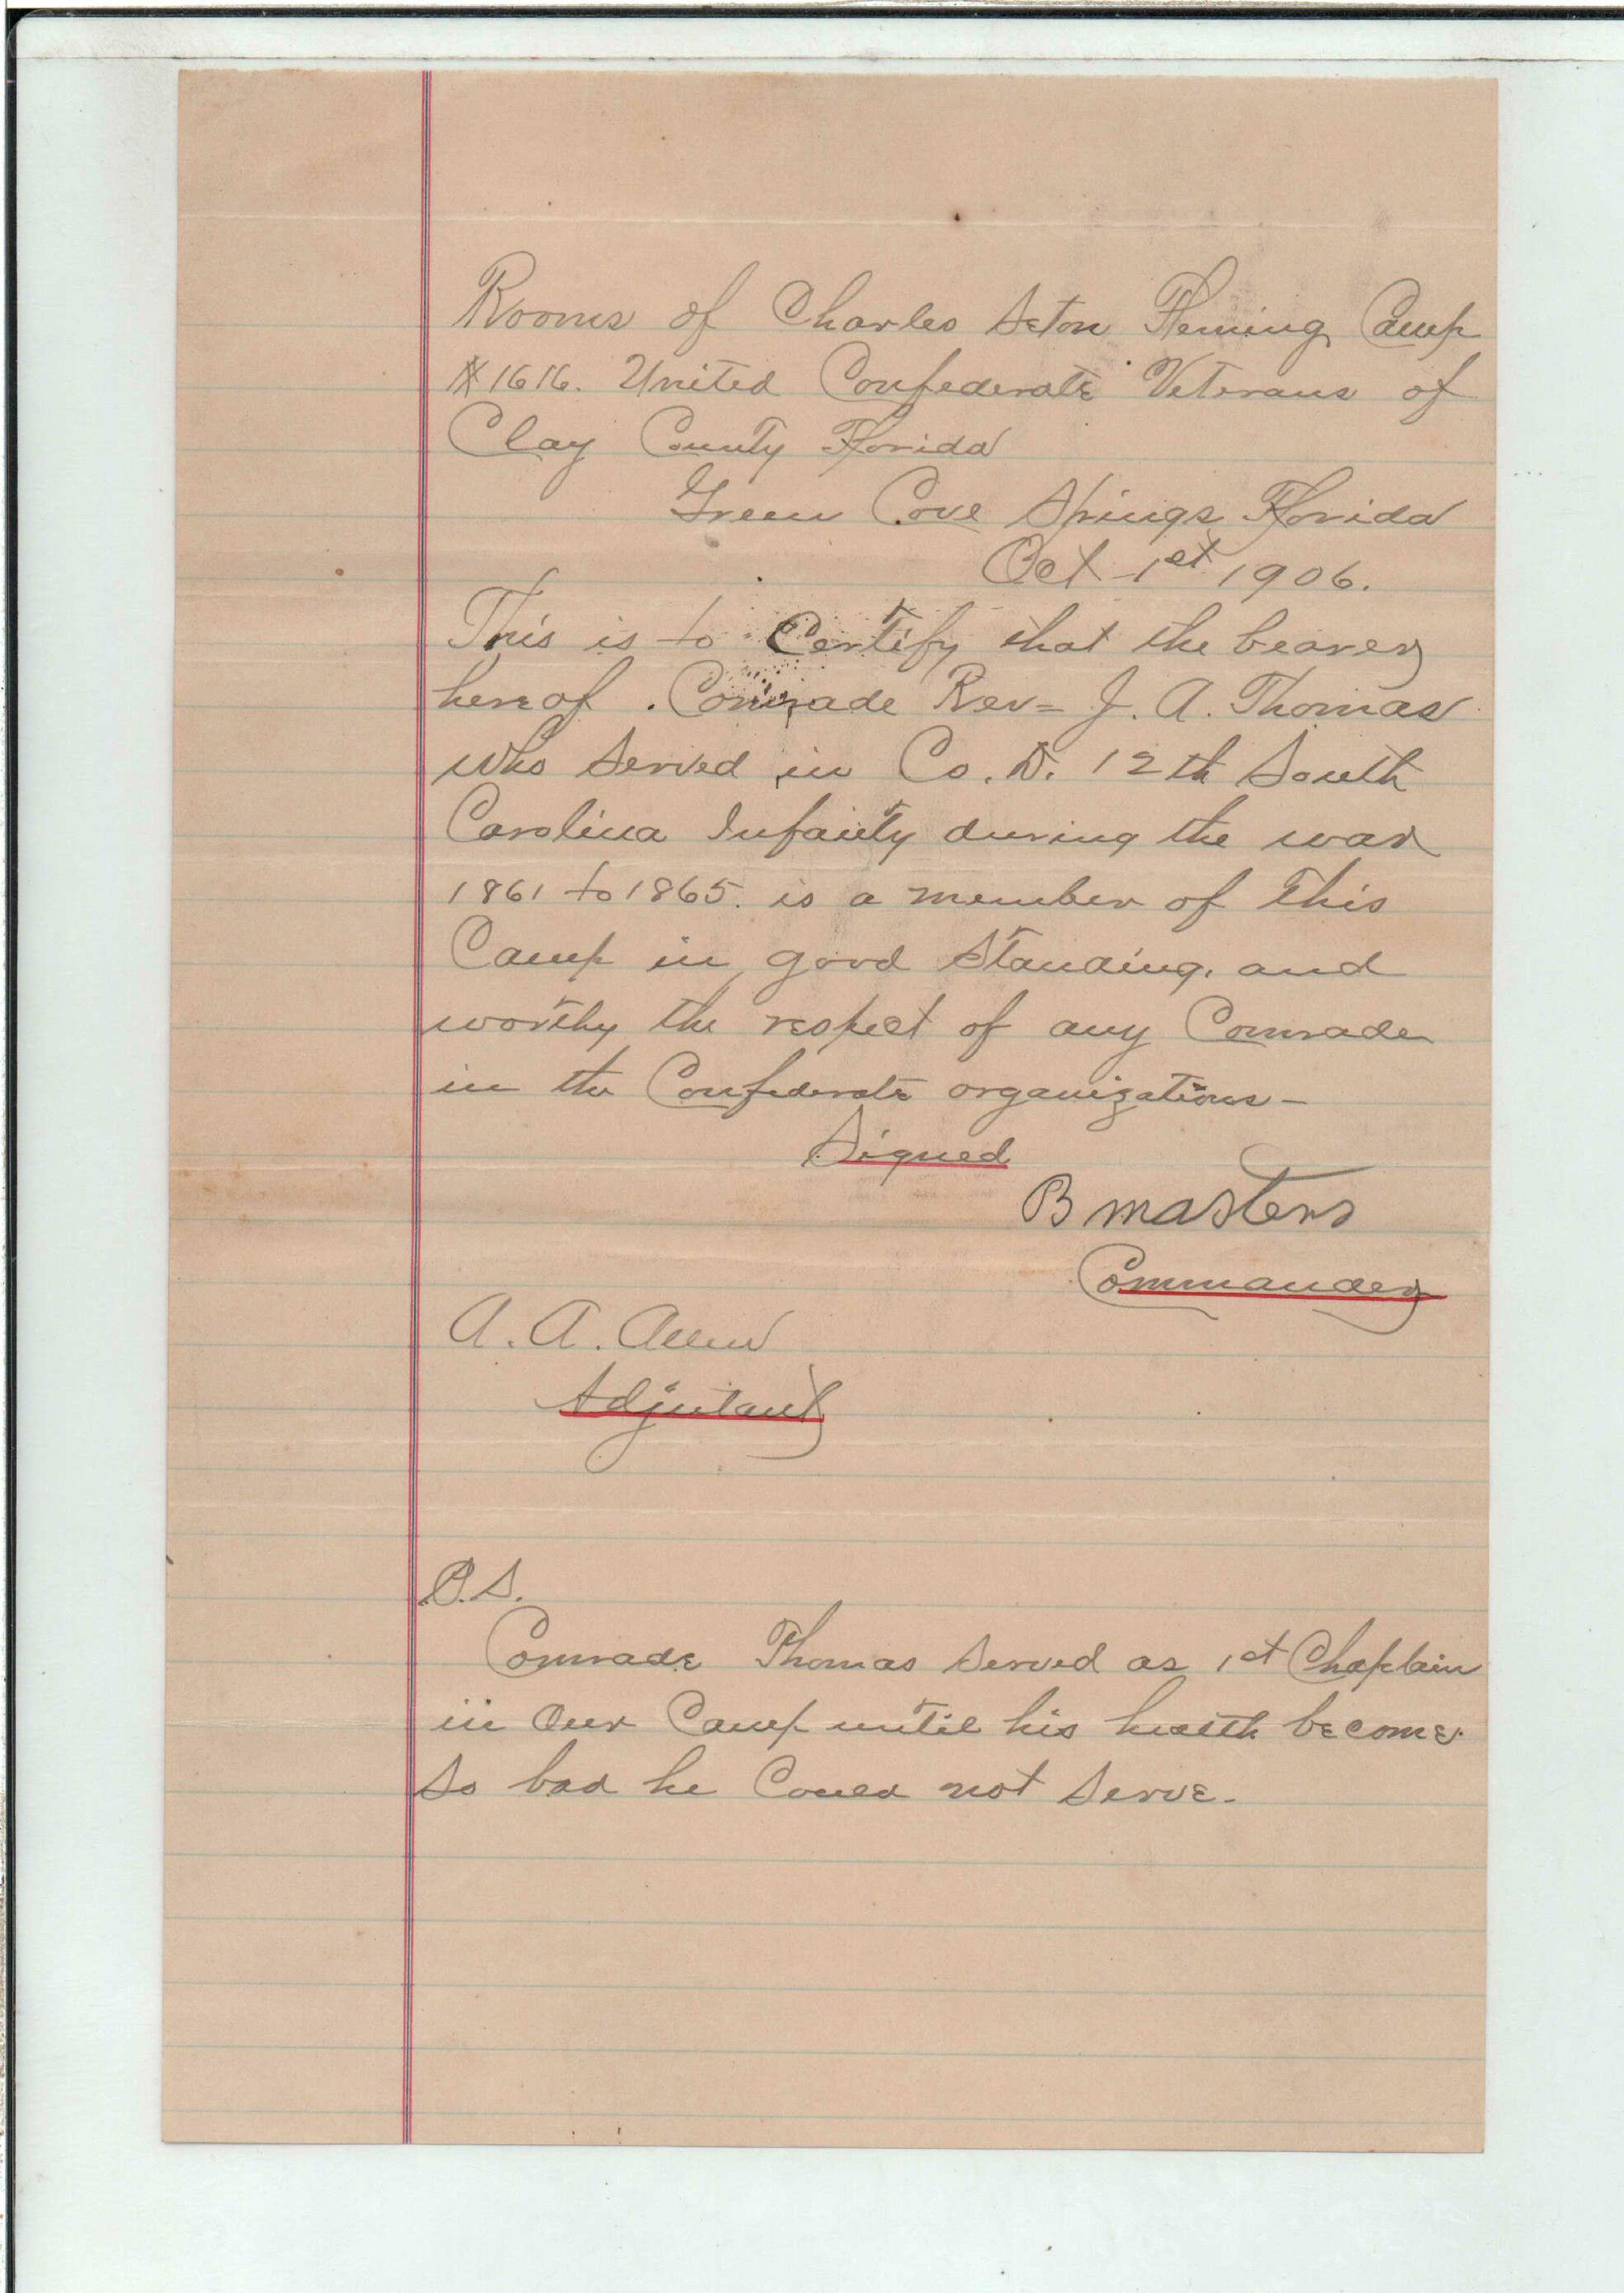 Rooms of Charles Seton Fleming Camp
# 1616. United Confederate Veterans of
Clay County Florida
Green Cove Springs Florida
Oct 1st 1906.
This is to Certify that the bearer
hereof . Comrade Rev= J. A. Thomas
who served in Co. D. 12th South
Carolina Infantry during the war
1861 to 1865. is a member of this
Camp in good standing, and
worthy the respect of any Comrade
in the Confederate organizations -
Signed
B masters
Commander
A. A. Allen
Adjutant
P.S.
Comrade Thomas served as 1st Chaplain
in Our Camp until his health become
so bad he Could not serve.